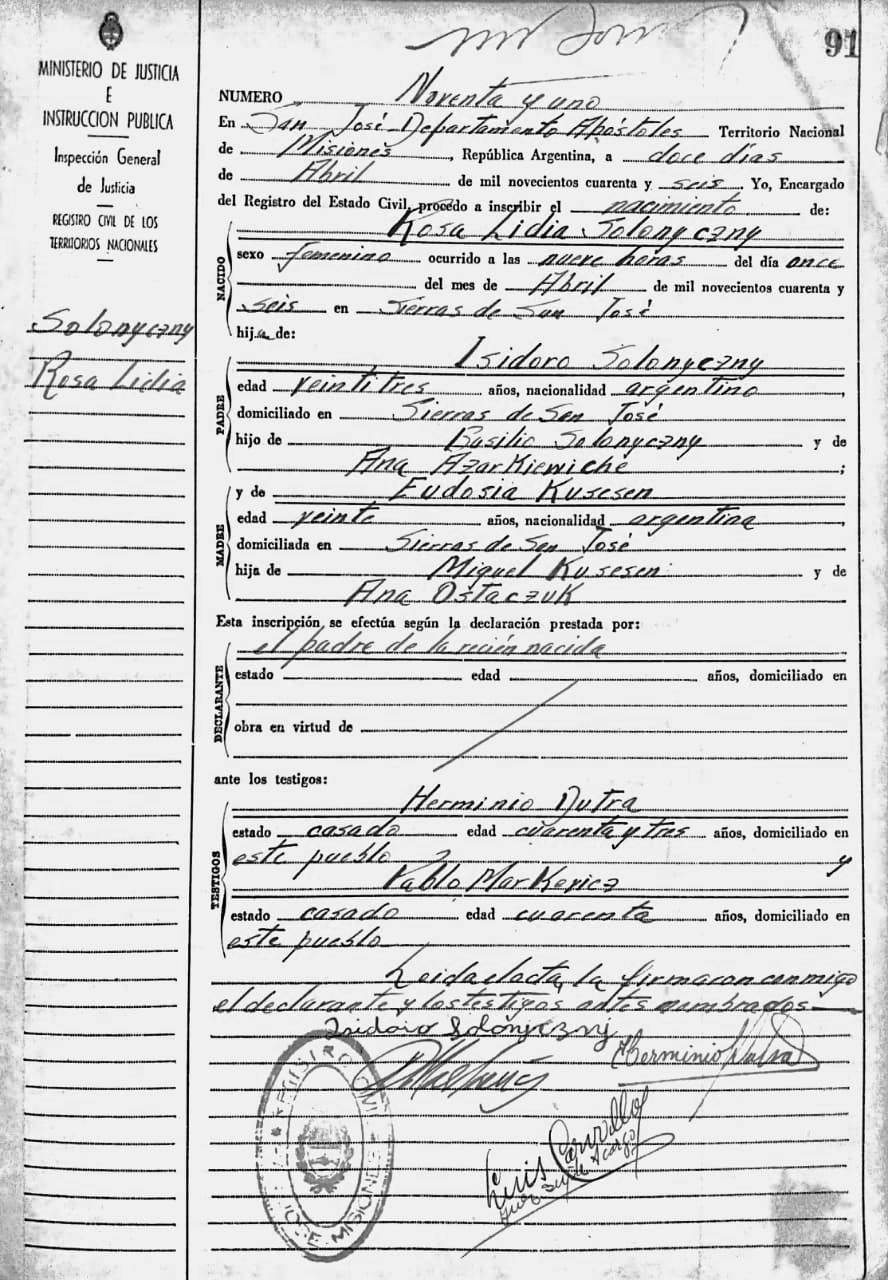 91
MINISTERIO DE JUSTICIA
E
INSTRUCCION PUBLICA
Inspección General
de Justicia
REGISTRO CIVIL DE LOS
TERRITORIOS NACIONALES
Solonyczny
Rosa Lidia
NUMERO Noventa y uno
En San José Departamento Apóstoles Territorio Nacional
de Misiones, República Argentina, a doce días
de Abril de mil novecientos cuarenta y seis. Yo, Encargado
del Registro del Estado Civil, procedo a inscribir el nacimiento de:
Rosa Lidia Solonyczny
NACIDO
sexo femenino ocurrido a las nueve horas del día once
del mes de Abril de mil novecientos cuarenta y
seis en Sierras de San José
hija de:
Isidoro Solonyczny
PADRE
edad veintitres años, nacionalidad argentino,
domiciliado en Sierras de San José
hijo de Basilio Solonyczny y de
Ana Azarkieviche;
MADRE
y de Eudosia Kusesen
edad veinte años, nacionalidad argentina,
domiciliada en Sierras de San José
hija de Miguel Kusesen y de
Ana Ostaczuk
Esta inscripción se efectúa según la declaración prestada por:
el padre de la recién nacida
DECLARANTE
estado edad años, domiciliado en
obra en virtud de
ante los testigos:
Herminio Dutra
TESTIGOS
estado casado edad cuarenta y tres años, domiciliado en
este pueblo y
Pablo Markevicz
estado casado edad cuarenta años, domiciliado en
este pueblo
Leida el acta, la firmaron conmigo
el declarante y los testigos antes nombrados
Isidoro Solonjcznj
Herminio Dutra
Luis Carvallo
REGISTRO CIVIL
JOSE MISIONES